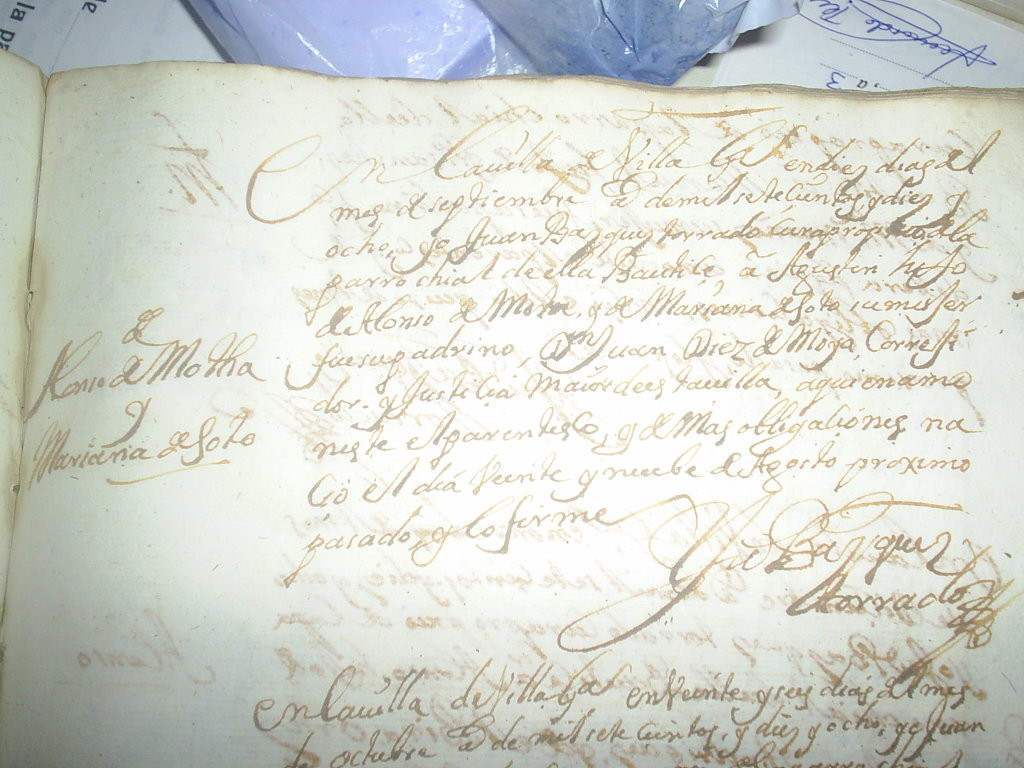 En la villa de Villa Gᵃ en diez dias del
mes de septiembre aº de mil sete cientos y diez y
ocho, yo Juan Bazquez torrado cura propio de la
parrochial de ella Baptiçe, a Agustin hijo
de Alonso de Motha, y de Mariana de Soto su muger
fue su padrino, Dn Juan Diez de Moya, Corregi
dor. y Justicia Maior de esta villa, a quien amo
neste el parentesco, y demas obligaciones na
cio el dia veinte y nuebe de Agosto proximo
pasado, y lo firme
Ju Bazquez
torrado
de
Alonso de Motha
y
Mariana de Soto
en la villa de Villa Gᵃ en veinte y seis dias del mes
de octubre aº de mil sete cientos, y diez y ocho, yo Juan